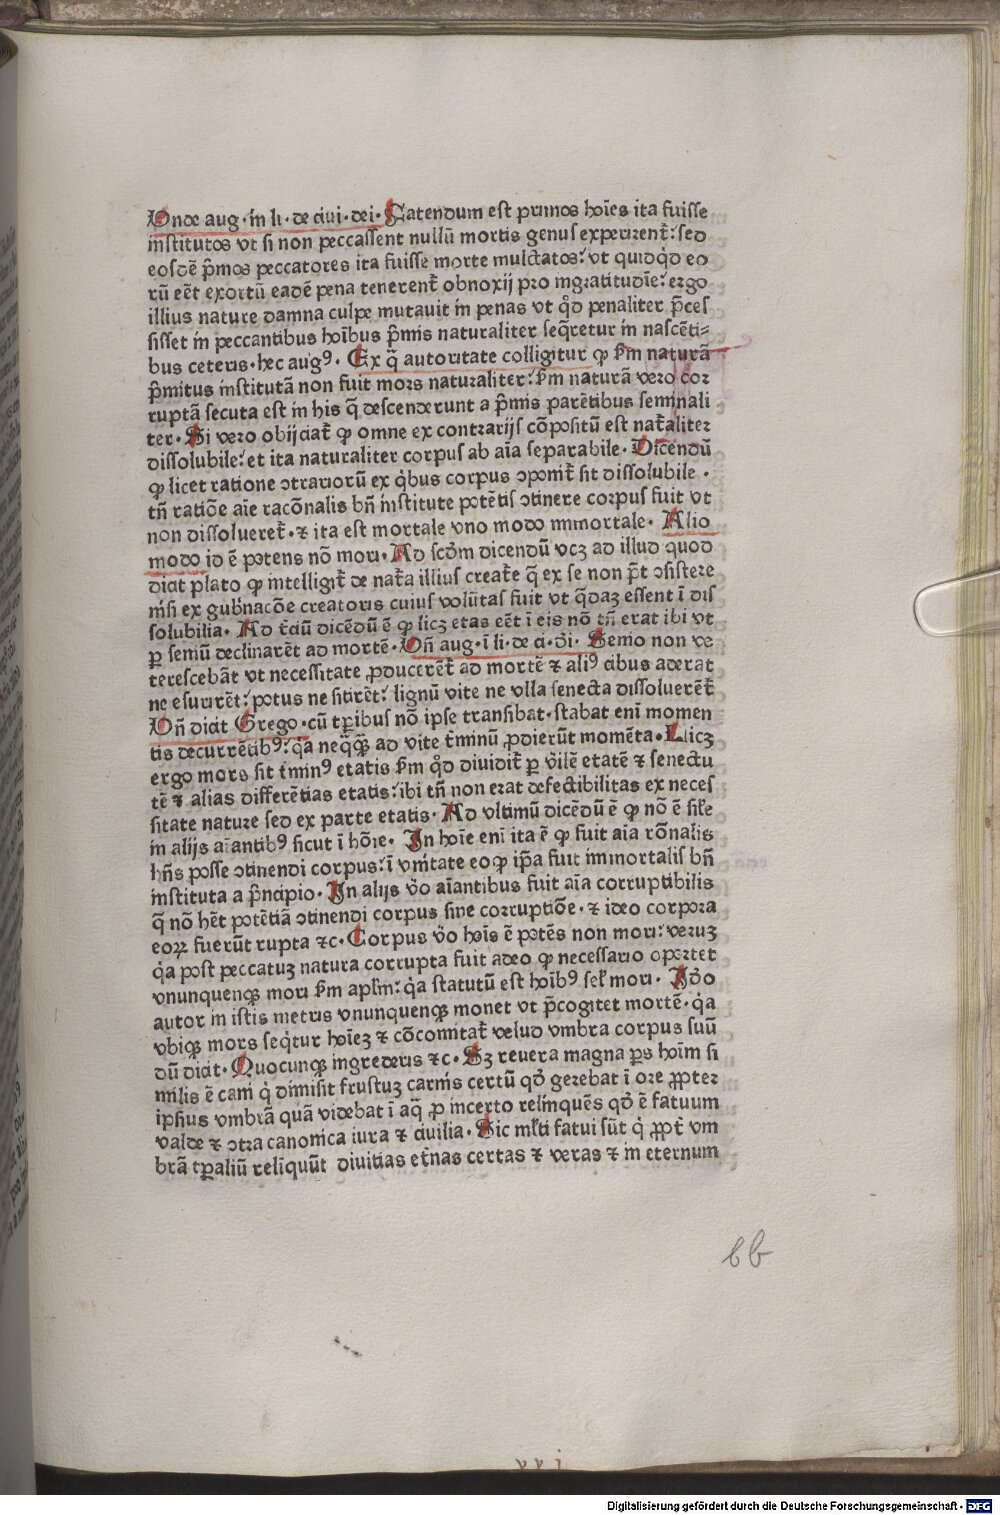 Vnde aug·in li·de ciui·dei· Fatendum est primos hoīes ita fuisse
institutos vt si non peccassent nullū mortis genus experirent᷑: sed
eosdē p̄mos peccatores ita fuisse morte mulctatos: vt quidq̇d eo
rū eēt exortū eadē pena tenerent᷑ obnoxij pro ingratitudīe: ergo
illius nature damna culpe mutauit in penas vt q̇d penaliter p̄ces
sisset in peccantibus hoībus p̄mis naturaliter seq̄retur in nascēti⸗
bus ceteris·hec augꝰ· Ex q̄ autoritate colligitur ꝙ ẜm naturā
p̄mitus institutā non fuit mors naturaliter: ẜm naturā vero cor
ruptā secuta est in his q̄ descenderunt a p̄mis parētibus seminali
ter· Si vero obijciat᷑ ꝙ omne ex contrarijs cōpositū est nat᷑aliter
dissolubile: et ita naturaliter corpus ab aīa separabile· Dicendū
ꝙ licet ratione ↄtrariorū ex q̇bus corpus ↄponit᷑ sit dissolubile ·
tn̄ ratiōe aīe racōnalis bn̄ institute potētis ↄtinere corpus fuit vt
non dissolueret᷑·⁊ ita est mortale vno modo immortale· Alio
modo id ē potens nō mori· Ad scd̄m dicendū vcꝫ ad illud quod
dicit plato ꝙ intelligit᷑ de nat᷑a illius creat᷑e q̄ ex se non p̄t ↄsistere
nisi ex gub̄nacōe creatoris cuius volūtas fuit vt q̄daꝫ essent ī dis
solubilia· Ad t᷑ciū dicēdū ē ꝙ licꝫ etas eēt ī eis nō tn̄ erat ibi vt
ꝑ seniū declinarēt ad mortē· Vn̄ aug·ī li·de ci·di· Senio non ve
terescebāt vt necessitate ꝓducerēt᷑ ad mortē ⁊ aliꝰ cibus aderat
ne esurirēt: potus ne sitirēt: lignū vite ne vlla senecta dissoluerēt᷑
Vn̄ dicit Grego·cū tꝑibus nō ipse transibat·stabat enī momen
tis decurrētibꝰ: q̇a neq̄ꝙ̄ ad vite t᷑minū ꝓdierūt momēta· Licꝫ
ergo mors sit t᷑minꝰ etatis ẜm q̇d diuidit᷑ ꝑ v̇ilē etatē ⁊ senectu
tē ⁊ alias differētias etatis: ibi tn̄ non erat defectibilitas ex neces
sitate nature sed ex parte etatis· Ad vltimū dicēdū ē ꝙ nō ē sil̄e
in alijs aīantibꝰ sicut ī hōie· In hoīe enī ita ē ꝙ fuit aīa rōnalis
hn̄s posse ↄtinendi corpus: ī vnitate eo ꝙ ip̄a fuit immortalis bn̄
instituta a p̄ncipio· In alijs v̇o aīantibus fuit aīa corruptibilis
q̄ nō hēt potētiā ↄtinendi corpus sine corruptiōe·⁊ ideo corpora
eoꝝ fuerūt rupta ⁊c· Corpus v̇o hoīs ē potēs non mori: veruꝫ
q̇a post peccatuꝫ natura corrupta fuit adeo ꝙ necessario oportet
vnunquenqꝫ mori ẜm apl̄m: q̇a statutū est hoībꝰ sel̄ mori· Iđo
autor in istis metris vnunquenqꝫ monet vt p̄cogitet mortē·q̇a
vbiqꝫ mors seq̇tur hoīeꝫ ⁊ cōcomitat᷑ velud vmbra corpus suū
dū dicit· Quocunqꝫ ingrederis ⁊c· Sꝫ reuera magna ꝑs hoīm si
milis ē cani q̇ dimisit frustuꝫ carnis certū qđ gerebat ī ore ꝓpter
ipsius vmbrā quā videbat ī aq̄ ꝓ incerto relinquēs qđ ē fatuum
valde ⁊ ↄtra canonica iura ⁊ ciuilia· Sic ml̄ti fatui sūt q̇ ꝓpt᷑ vm
brā tꝑaliū relīquūt diuitias et᷑nas certas ⁊ veras ⁊ in eternum
bb
Digitalisierung gefördert durch die Deutsche Forschungsgemeinschaft · DFG